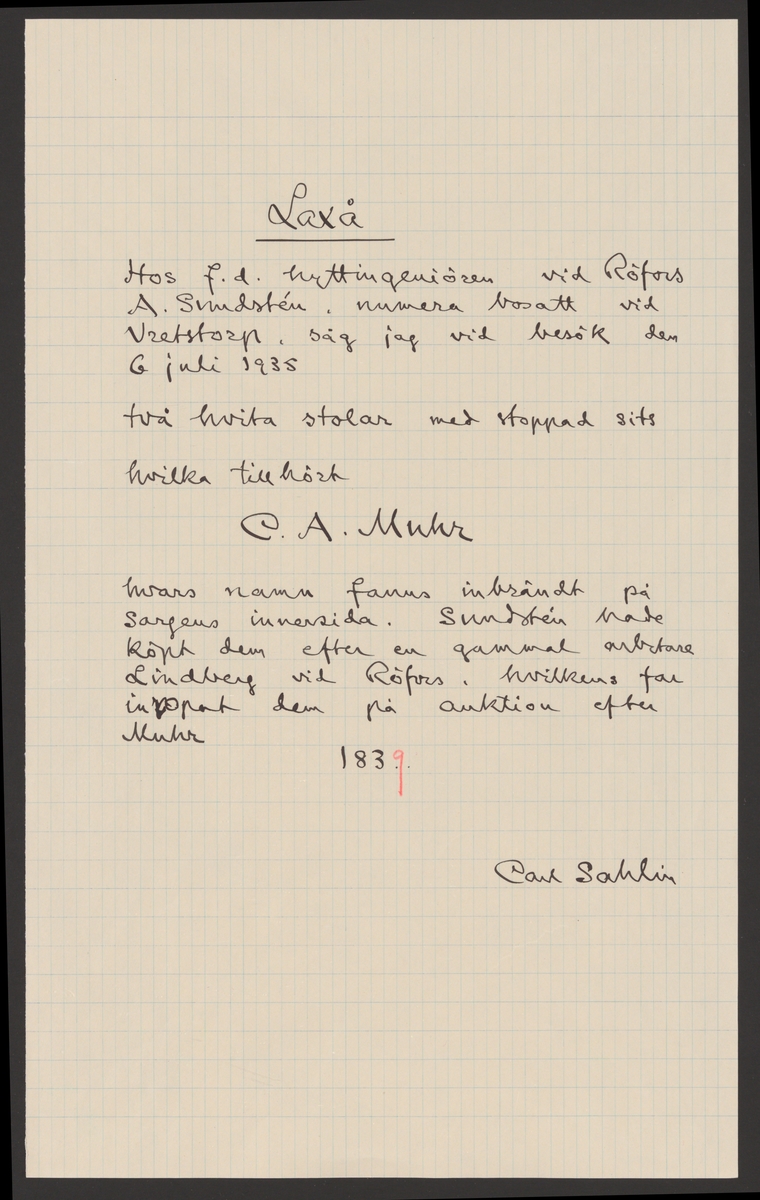 Laxå
Hos f.d. hyttingeniören vid Röfors
A. Sundstén, numera bosatt vid
Vretstorp, såg jag vid besök den
6 juli 1935
två hvita stolar med stoppad sits
hvilka tillhört
C. A. Muhr
hvars namn fanns inbrändt på
Sargens innersida. Sundstén hade
köpt dem efter en gammal arbetare
Lindberg vid Röfors, hvilkens far
inropat dem på auktion efter
Muhr
1839.
Carl Sahlin